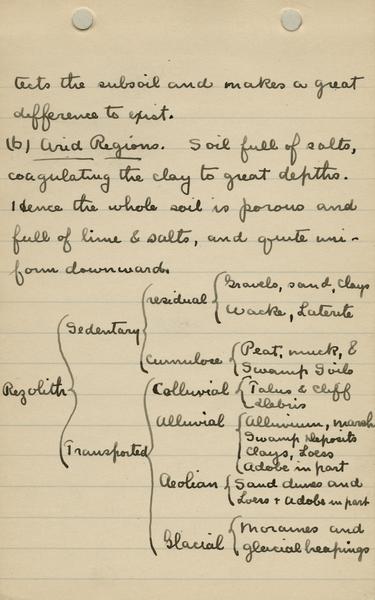 tects the subsoil and makes a great
difference to exist.
(b) Arid Regions. Soil full of salts,
coagulating the clay to great depths.
Hence the whole soil is porous and
full of lime & salts, and quite uni-
form downward.
Regolith
Sedentary
residual
Gravels, sand, clays
Wacke, Laterite
Cumulose
Peat, muck, &
Swamp Soils
Transported
Colluvial
Talus & cliff
debris
Alluvial
Alluvium, marsh
Swamp deposits
Clays, Loess
Adobe in part
Aeolian
Sand dunes and
Loess + Adobe in part
Glacial
Moraines and
glacial heapings